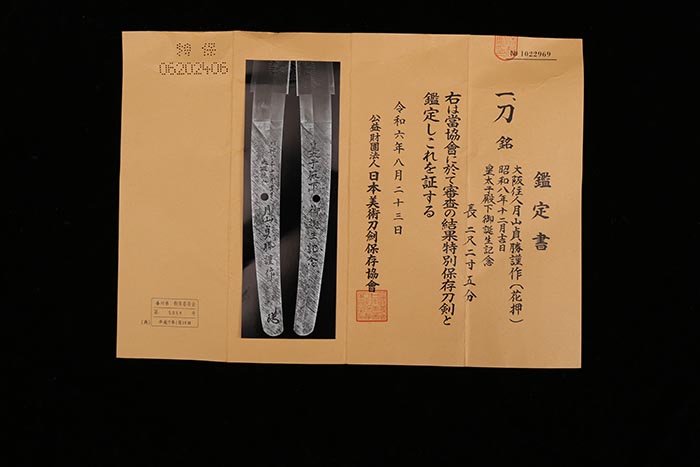 № 1022969
鑑定書
一、刀 銘
大阪住人月山貞勝謹作(花押)
昭和八年十二月吉日
皇太子殿下御誕生記念
長 二尺二寸五分
右は當協會に於て審査の結果特別保存刀剣と
鑑定しこれを証する
令和六年八月二十三日
公益財團法人 日本美術刀劍保存協會
太子殿下御誕生記念
月山貞勝謹作
特保
06202406